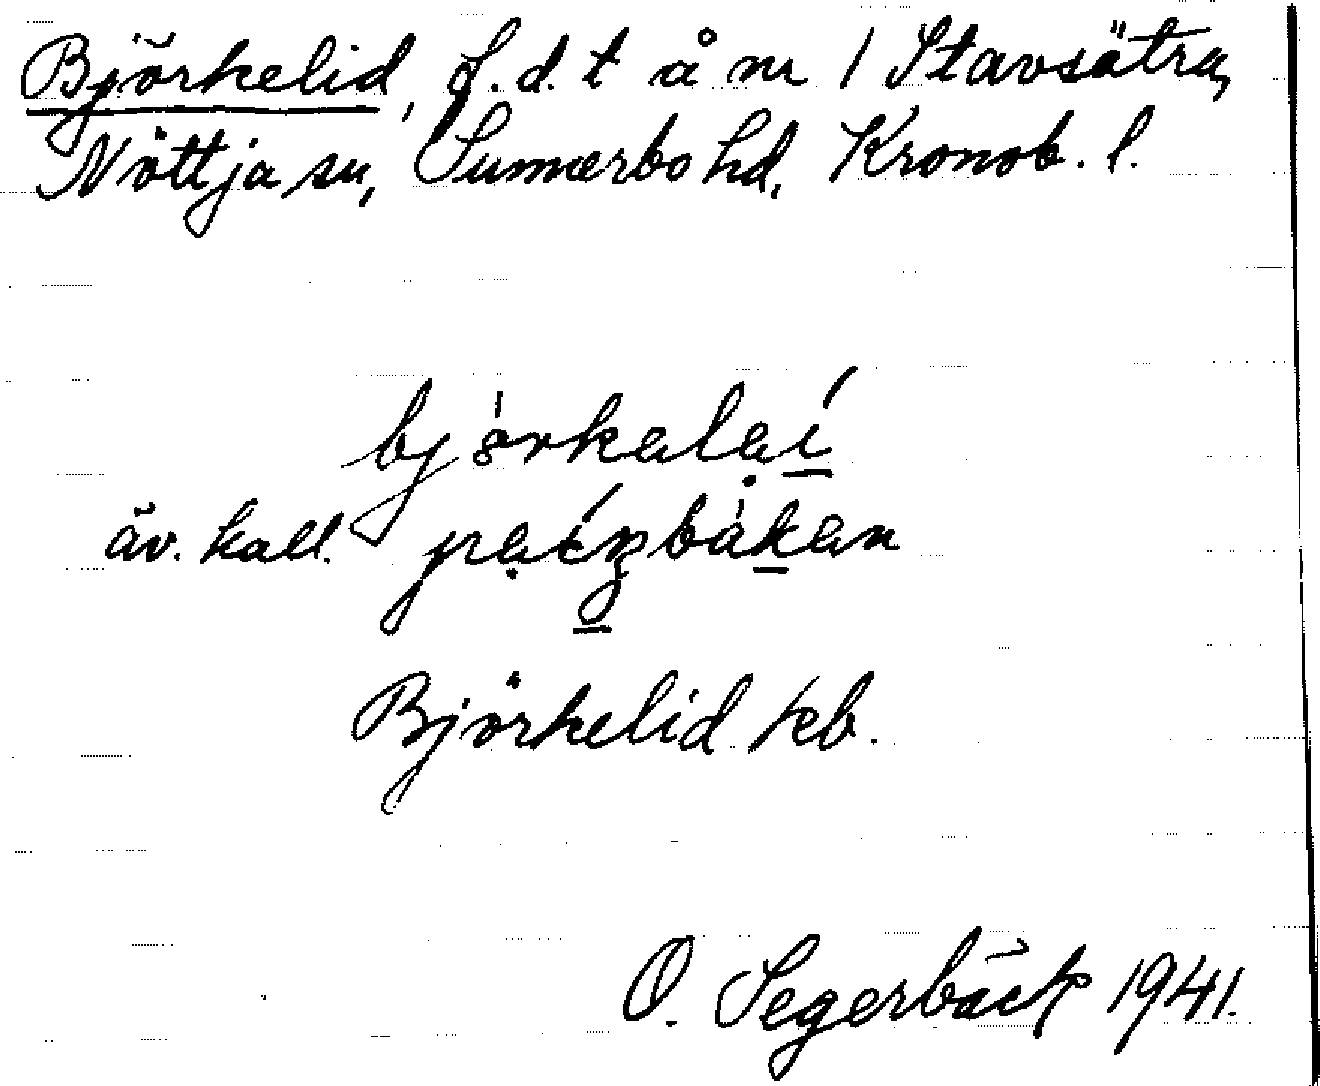 Björkelid, f.d. t å nr 1 Stavsätra,
Nöttja sn, Sunnerbo hd, Kronob. l.
björkalaí
äv. kall.
Björkelid kb.
O. Segerbäck 1941.